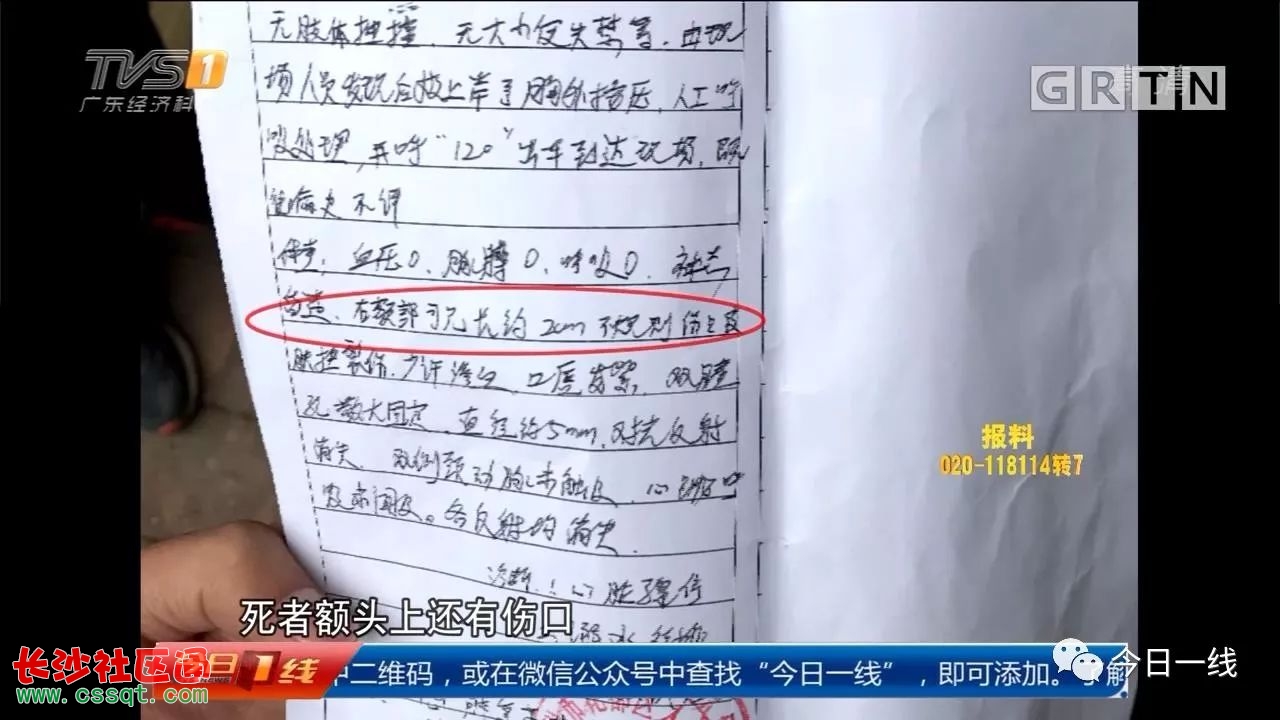 无肢体抽搐、无大小便失禁等,由现
场人员发现后救上岸予胸外按压,人工呼
吸处理,并呼“120”出车到达现场,既
往病史不详
体查:血压0、脉搏0、呼吸0、神志
右额部可见长约2cm不规则伤口及
肤挫裂伤,少许渗血,口唇发紧,双瞳
孔散大固定,直径约5mm,对光反射
消失,双侧颈动脉未触及,心
及未闻及。各反射均消失.
诊断:心脏骤停
溺水
TVS1
广东经济科
GRTN
报料
020-118114转7
死者额头上还有伤口
今日1线
中二维码,或在微信公众号中查找“今日一线”,即可添加。了解
今日一线
长沙社区网
www.cssqt.com